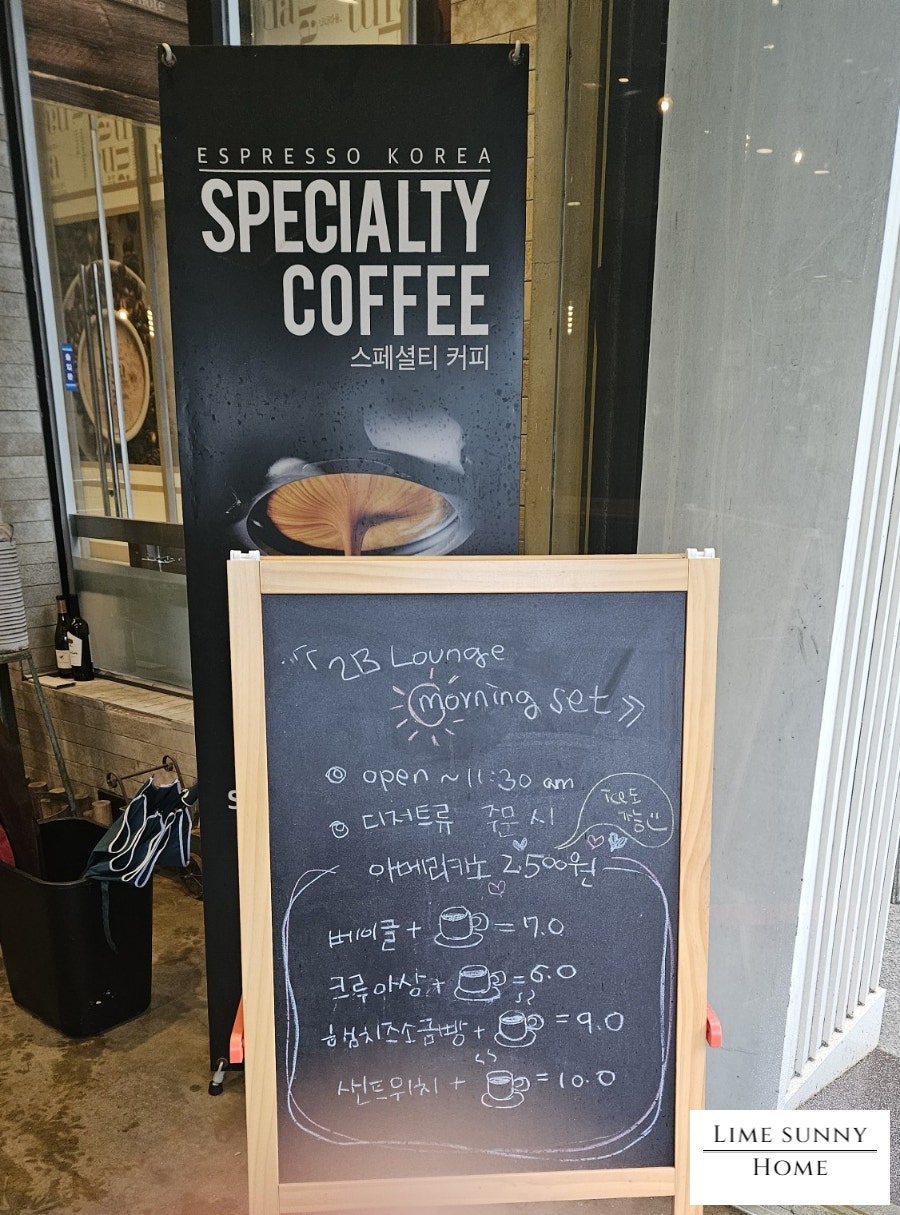 ESPRESSO KOREA
SPECIALTY
COFFEE
스페셜티 커피
2B Lounge
morning set »
open ~ 11:30 am
디저트류 주문 시
ice도
가능
아메리카노 2.500원
베이글 + = 7.0
크루아상 + = 6.0
햄치즈소금빵 + = 9.0
샌드위치 + = 10.0
LIME SUNNY
HOME